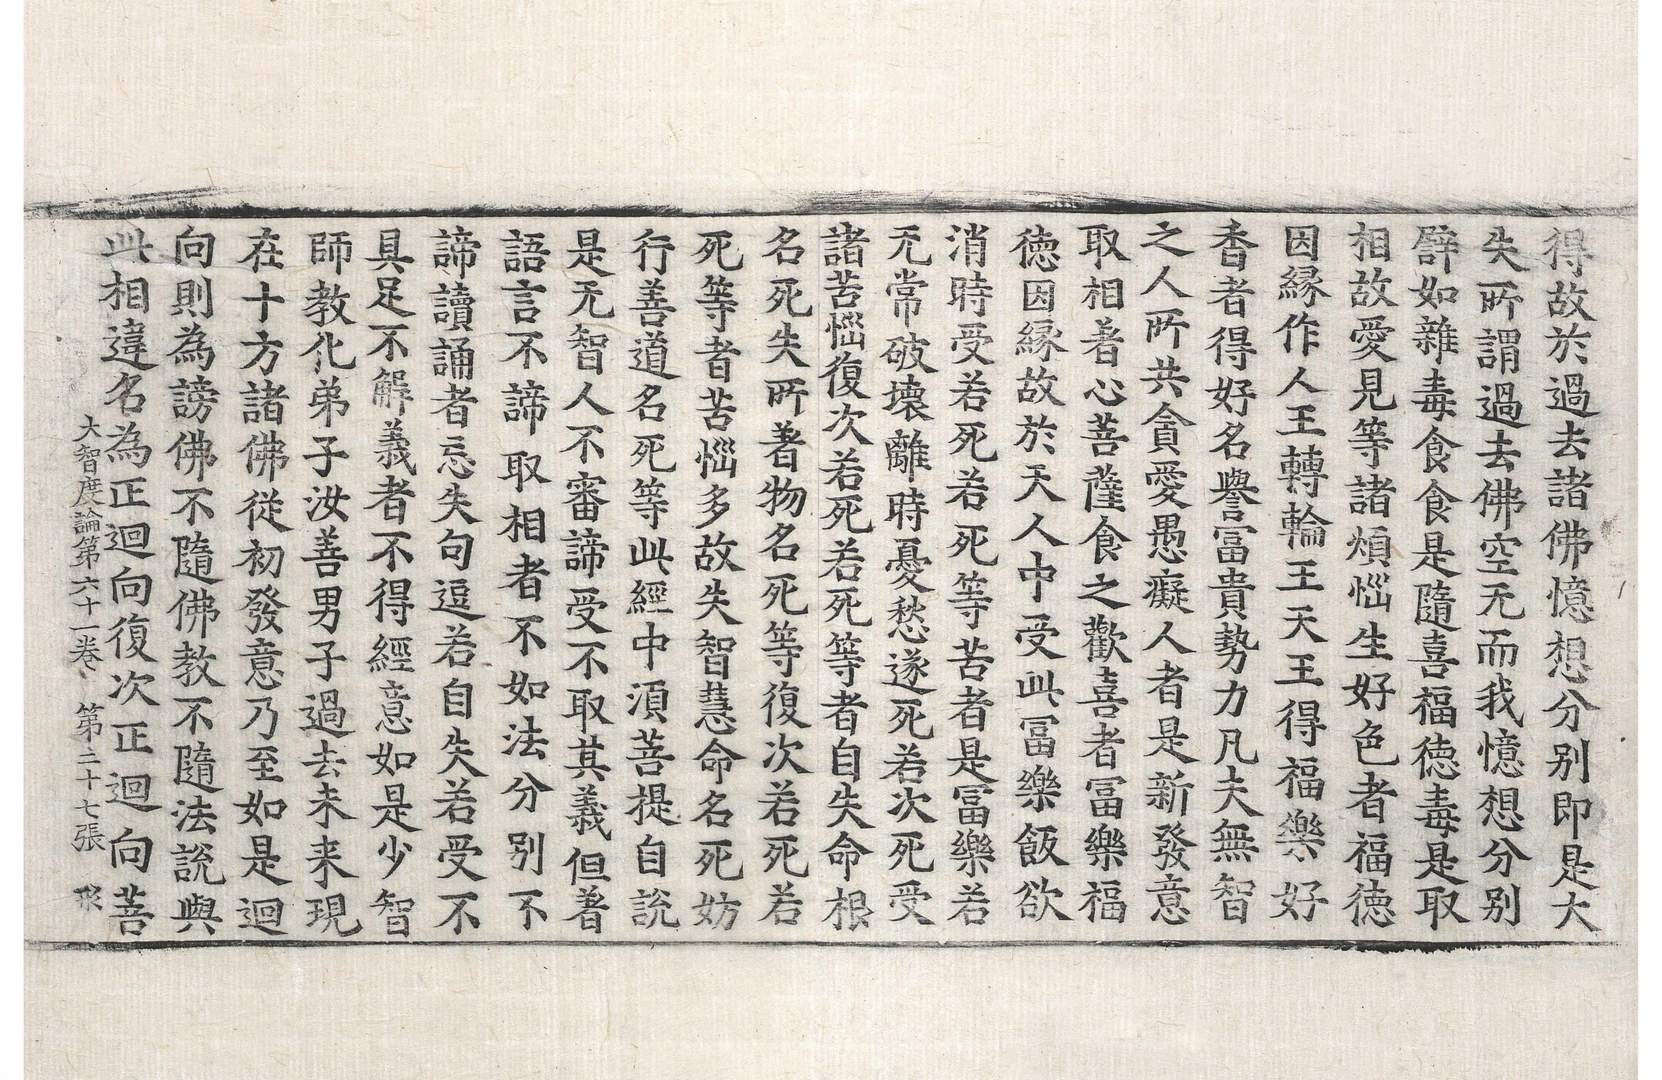 得故於過去諸佛憶想分别即是大
失所謂過去佛空无而我憶想分别
譬如雜毒食食是隨喜福德毒是取
相故愛見等諸煩惱生好色者福德
因緣作人王轉輪王天王得福樂好
香者得好名譽冨貴勢力凡夫無智
之人所共貪愛愚癡人者是新發意
取相著心菩薩食之歡喜者冨樂福
德因緣故於天人中受此冨樂飯欲
消時受若死若死等苦者是冨樂若
无常破壞離時憂愁遂死若次死受
諸苦惱復次若死若死等者自失命根
名死失所著物名死等復次若死若
死等者苦惱多故失智慧命名死妨
行善道名死等此經中湏菩提自說
是无智人不審諦受不取其義但著
語言不諦取相者不如法分别不
諦讀誦者忘失句逗若自失若受不
具足不解義者不得經意如是少智
師教化弟子汝善男子過去未来現
在十方諸佛從初發意乃至如是迴
向則為謗佛不隨佛教不隨法說與
此相違名為正迴向復次正迴向菩
大智度論第六十一卷 第二十七張